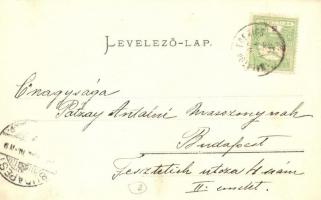 LEVELEZŐ-LAP.
Őnagysága
Pálzay Antalné úrasszonynak
Budapest
Festetich utcza 4 szám
II. emelet.